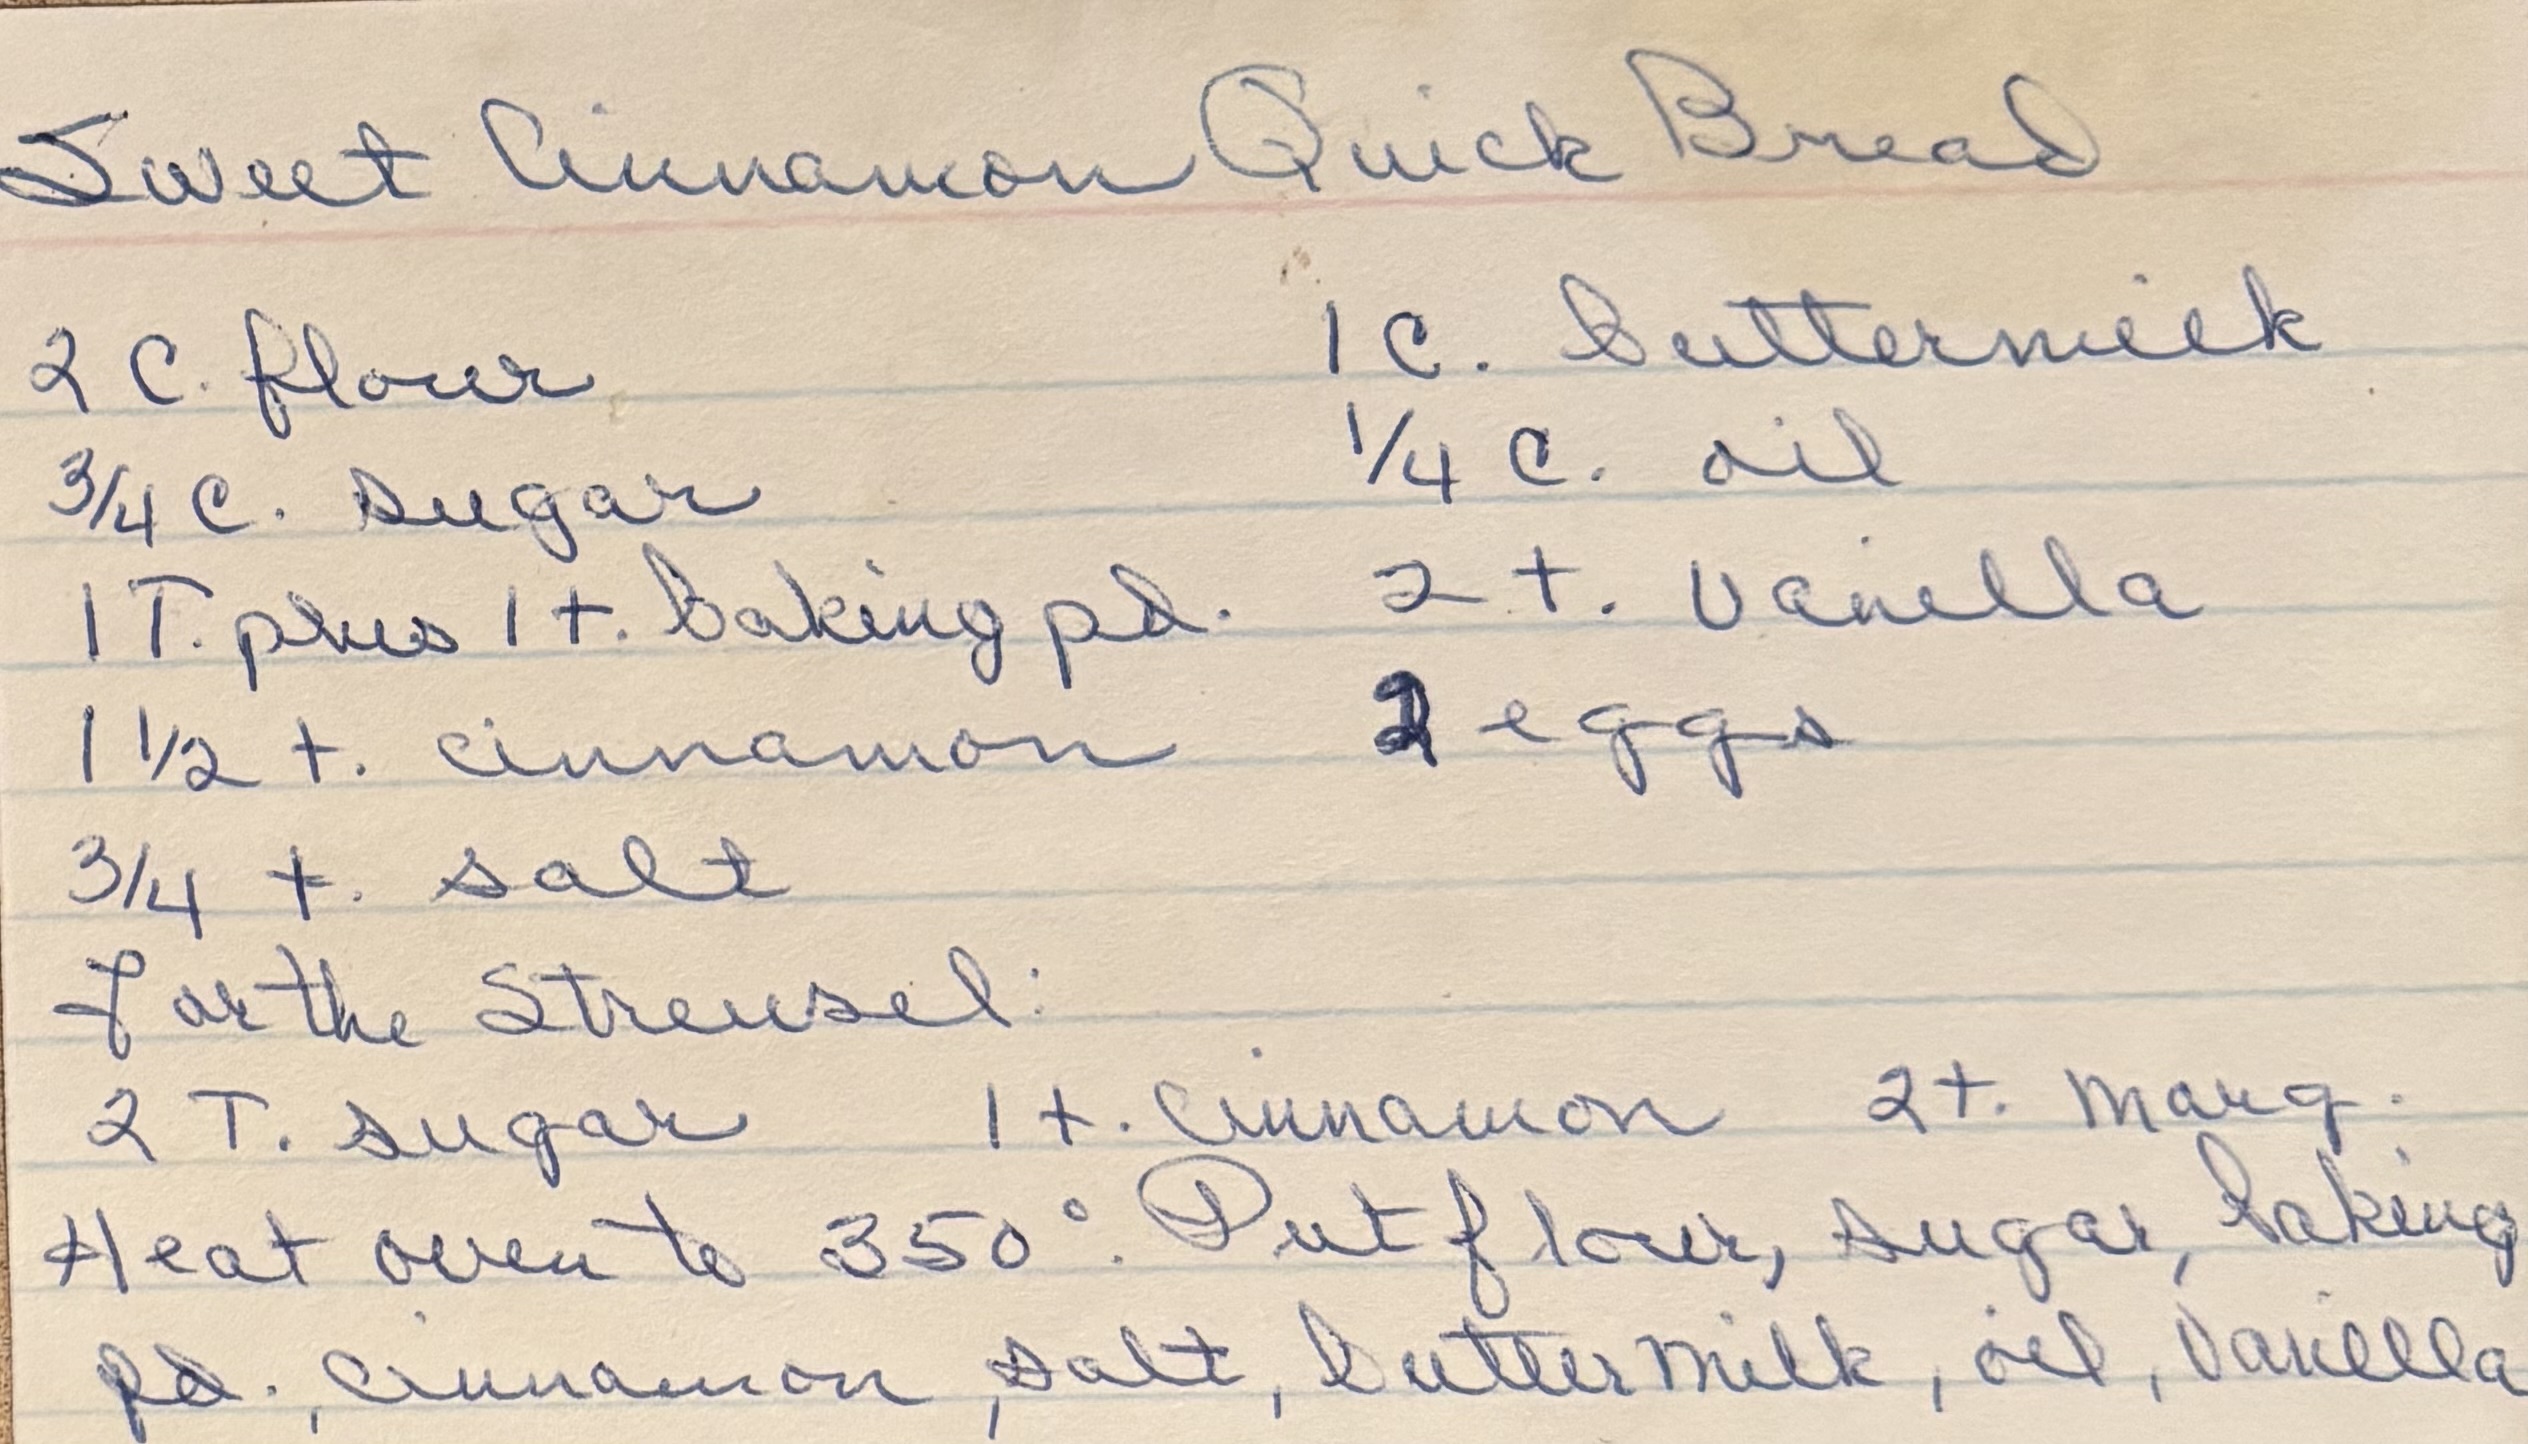 Sweet Cinnamon Quick Bread
2 C. flour
3/4 C. sugar
1 T. plus 1 t. baking pd.
1 1/2 t. cinnamon
3/4 t. salt
1 C. buttermilk
1/4 C. oil
2 t. vanilla
2 eggs
For the Streusel:
2 T. sugar 1 t. cinnamon 2 t. marg.
Heat oven to 350°. Put flour, sugar, baking
pd., cinnamon, salt, buttermilk, oil, vanilla